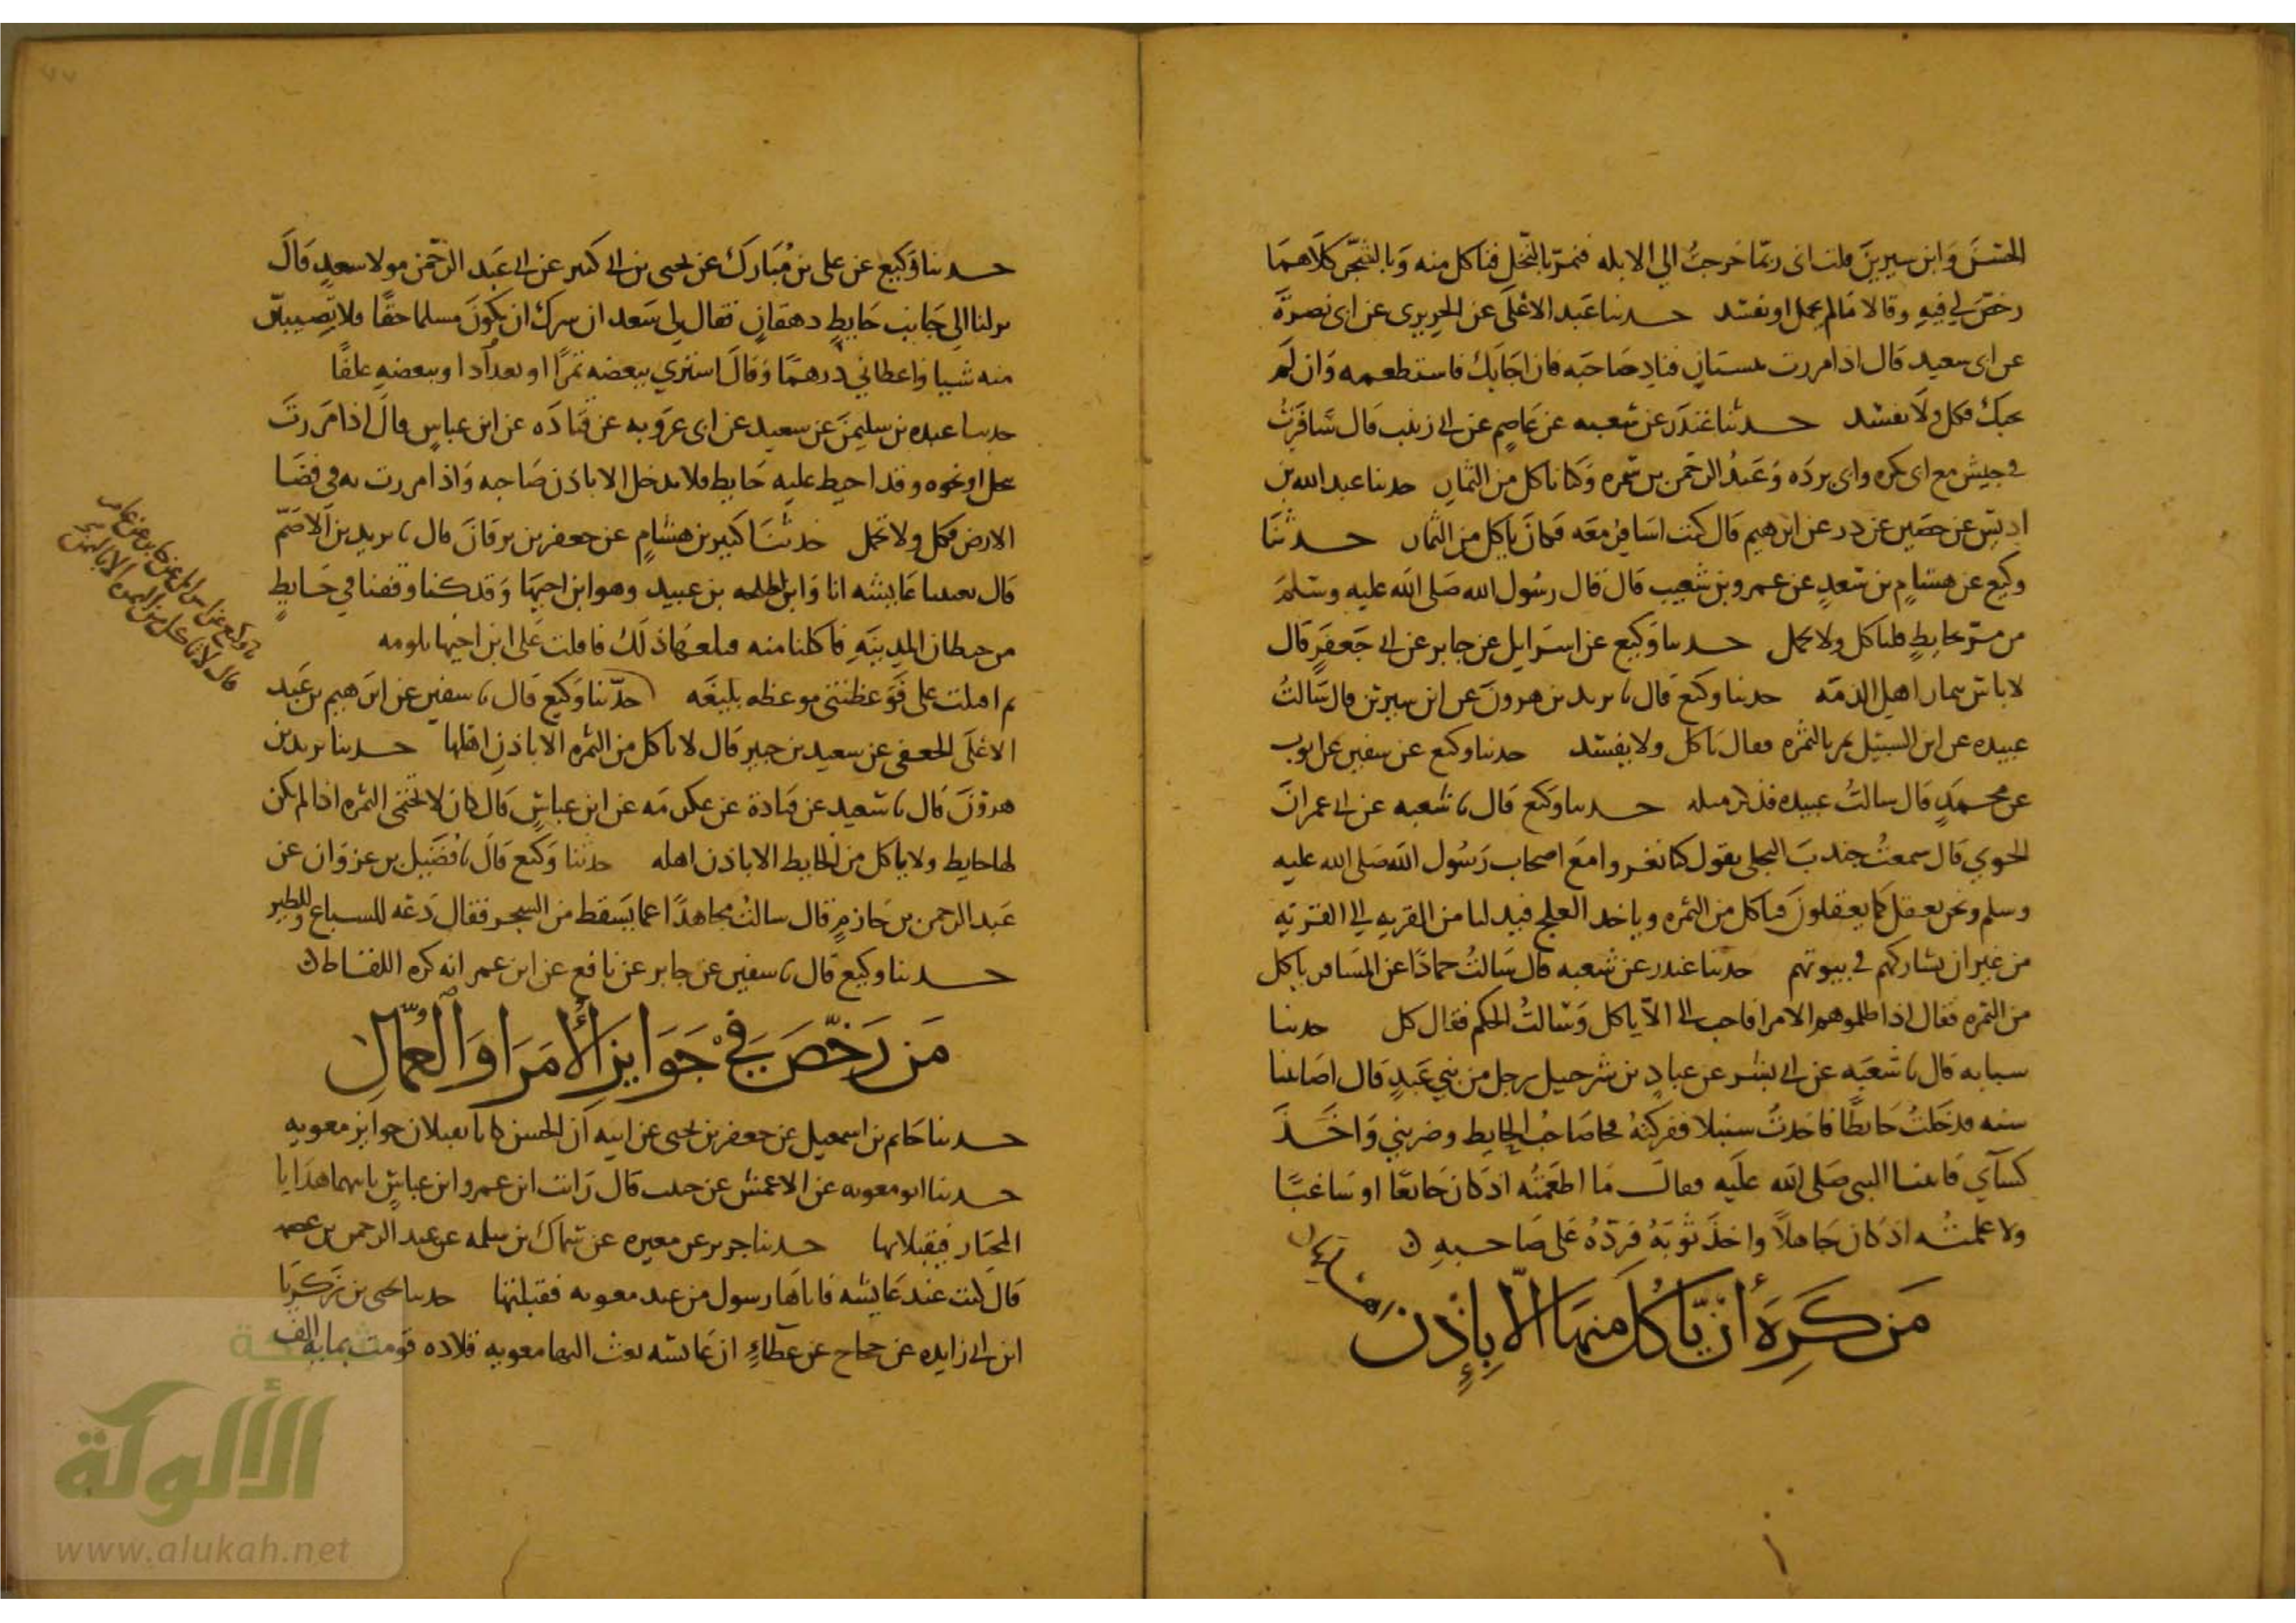 الحسن وابن سيرين قلت انى ربما خرجت الي الابله فنمر بالنخل فناكل منه وبالشجر كلاهما
رخص لي فيه وقالا مالم يحمل او يفسد حدثنا عبد الاعلى عن الجريرى عن ابى نصرة
عن ابى سعيد قال اذا مررت ببستان فناد صاحبه فان اجابك فاستطعمه وان لم
يجبك فكل ولا يفسد حدثنا غندر عن شعبه عن عاصم عن ابي زينب قال سافرت
في جيش مع ابى بكره وابى برده وعبد الرحمن بن سمره وكانا ناكل من الثمار حدثنا عبد الله بن
ادريس عن حصين عن در عن ابرهيم قال كنت اسافر معه فكان ياكل من الثمار حدثنا
وكيع عن هشام بن سعد عن عمرو بن شعيب قال قال رسول الله صلى الله عليه وسلم
من مر بحايط فلياكل ولا يحمل حدثنا وكيع عن اسرايل عن جابر عن ابي جعفر قال
لا باس بثمار اهل الذمه حدثنا وكيع قال نا يزيد بن هرون عن ابن سيرين قال سالت
عبيده عن ابن السبيل يمر بالثمره فقال ياكل ولا يفسد حدثنا وكيع عن سفين عن ايوب
عن محمد قال سالت عبيده فذكر مثله حدثنا وكيع قال نا شعبه عن ابي عمران
الجوني قال سمعت جندب البجلي يقول كنا نغزوا مع اصحاب رسول الله صلى الله عليه
وسلم ونحن نفعل كما يفعلون فناكل من الثمره وياخذ العلج فيدلنا من القريه الى القريه
من غير ان نشاركهم في بيوتهم حدثنا غندر عن شعبه قال سالت حمادا عن المسافر ياكل
من الثمره فقال اذا ظلموهم الامرا فاحب الي الا ياكل وسالت الحكم فقال كل حدثنا
شبابه قال نا شعبه عن ابي بشر عن عباد بن شرحيل رجل من بني عبد قال اصابنا
سنه فدخلت حايطا فاخذت سنبلا ففركته فجا صاحب الحايط وضربني واخذ
كسآي فاتينا النبي صلى الله عليه فقال ما اطعمته اذ كان جايعا او ساغبا
ولا علمته اذ كان جاهلا واخذ ثوبه فرده على صاحبه
من كره أن ياكل منها الا بإذن
حدثنا وكيع عن على بن مبارك عن يحيى بن ابي كثير عن ابي عبد الرحمن مولا سعد قال
نزلنا الي جانب حايط دهقان فقال لي سعد ان سرك ان تكون مسلما حقا فلا تصيبن
منه شييا واعطاني درهما وقال اشتري ببعضه تمرا او وببعضه علفا
حدثنا عبده بن سليمن عن سعيد عن ابى عروبه عن قتاده عن ابن عباس قال اذا مررت
بنخل او نحوه وقد احيط عليه حايط فلا تدخل الا باذن صاحبه واذا مررت به في فضا
الارض فكل ولا تحمل حدثنا كثير بن هشام عن جعفر بن برقان قال نا يزيد بن الاصم
قال عايشه انا وابن لطلحه بن عبيد وهو ابن اختها وقد كنا وقفنا في حايط
من حيطان المدينه فاكلنا منه فبلغها ذلك فاقبلت على ابن اختها تلومه
ثم اقبلت على فوعظتني موعظه بليغه حدثنا وكيع قال نا سفين عن ابرهيم بن عبد
الاعلى الجعفى عن سعيد بن جبير قال لا ياكل من الثمره الا باذن اهلها حدثنا يزيد بن
هرون قال نا سعيد عن قتادة عن عكرمه عن ابن عباس قال كان لا الثمره اذا لم يكن
لها حايط ولا ياكل من الحايط الا باذن اهله حدثنا وكيع قال نا فضيل بن غزوان عن
عبد الرحمن بن حازم قال سالت مجاهدا عما يسقط من الشجر فقال دعه للسباع وللطير
حدثنا وكيع قال نا سفين عن جابر عن نافع عن ابن عمر انه كره اللقاط
من رخص في جوايز الأمرا والعمال
حدثنا حاتم بن اسمعيل عن جعفر بن يحيى عن ابيه ان الحسن كانا يقبلان جوايز معويه
حدثنا ابو معويه عن الاعمش عن حبيب قال رايت ابن عمر وابن عباس ياتيهما هدايا
المختار فيقبلانها حدثنا جرير عن مغيره عن سماك بن سلمه عن عبد الرحمن بن عصمه
قال كنت عند عايشه فاتاها رسول من عند معويه فقبلتها حدثنا يحيى بن زكريا
ابن ابي زايده عن حجاج عن عطاء ان عايشه بعث اليها معويه قلاده قومت بمايه الف
نا وكيع عن اسرايل عن جابر عن عامر
شبكة
الألوكة
www.alukah.net